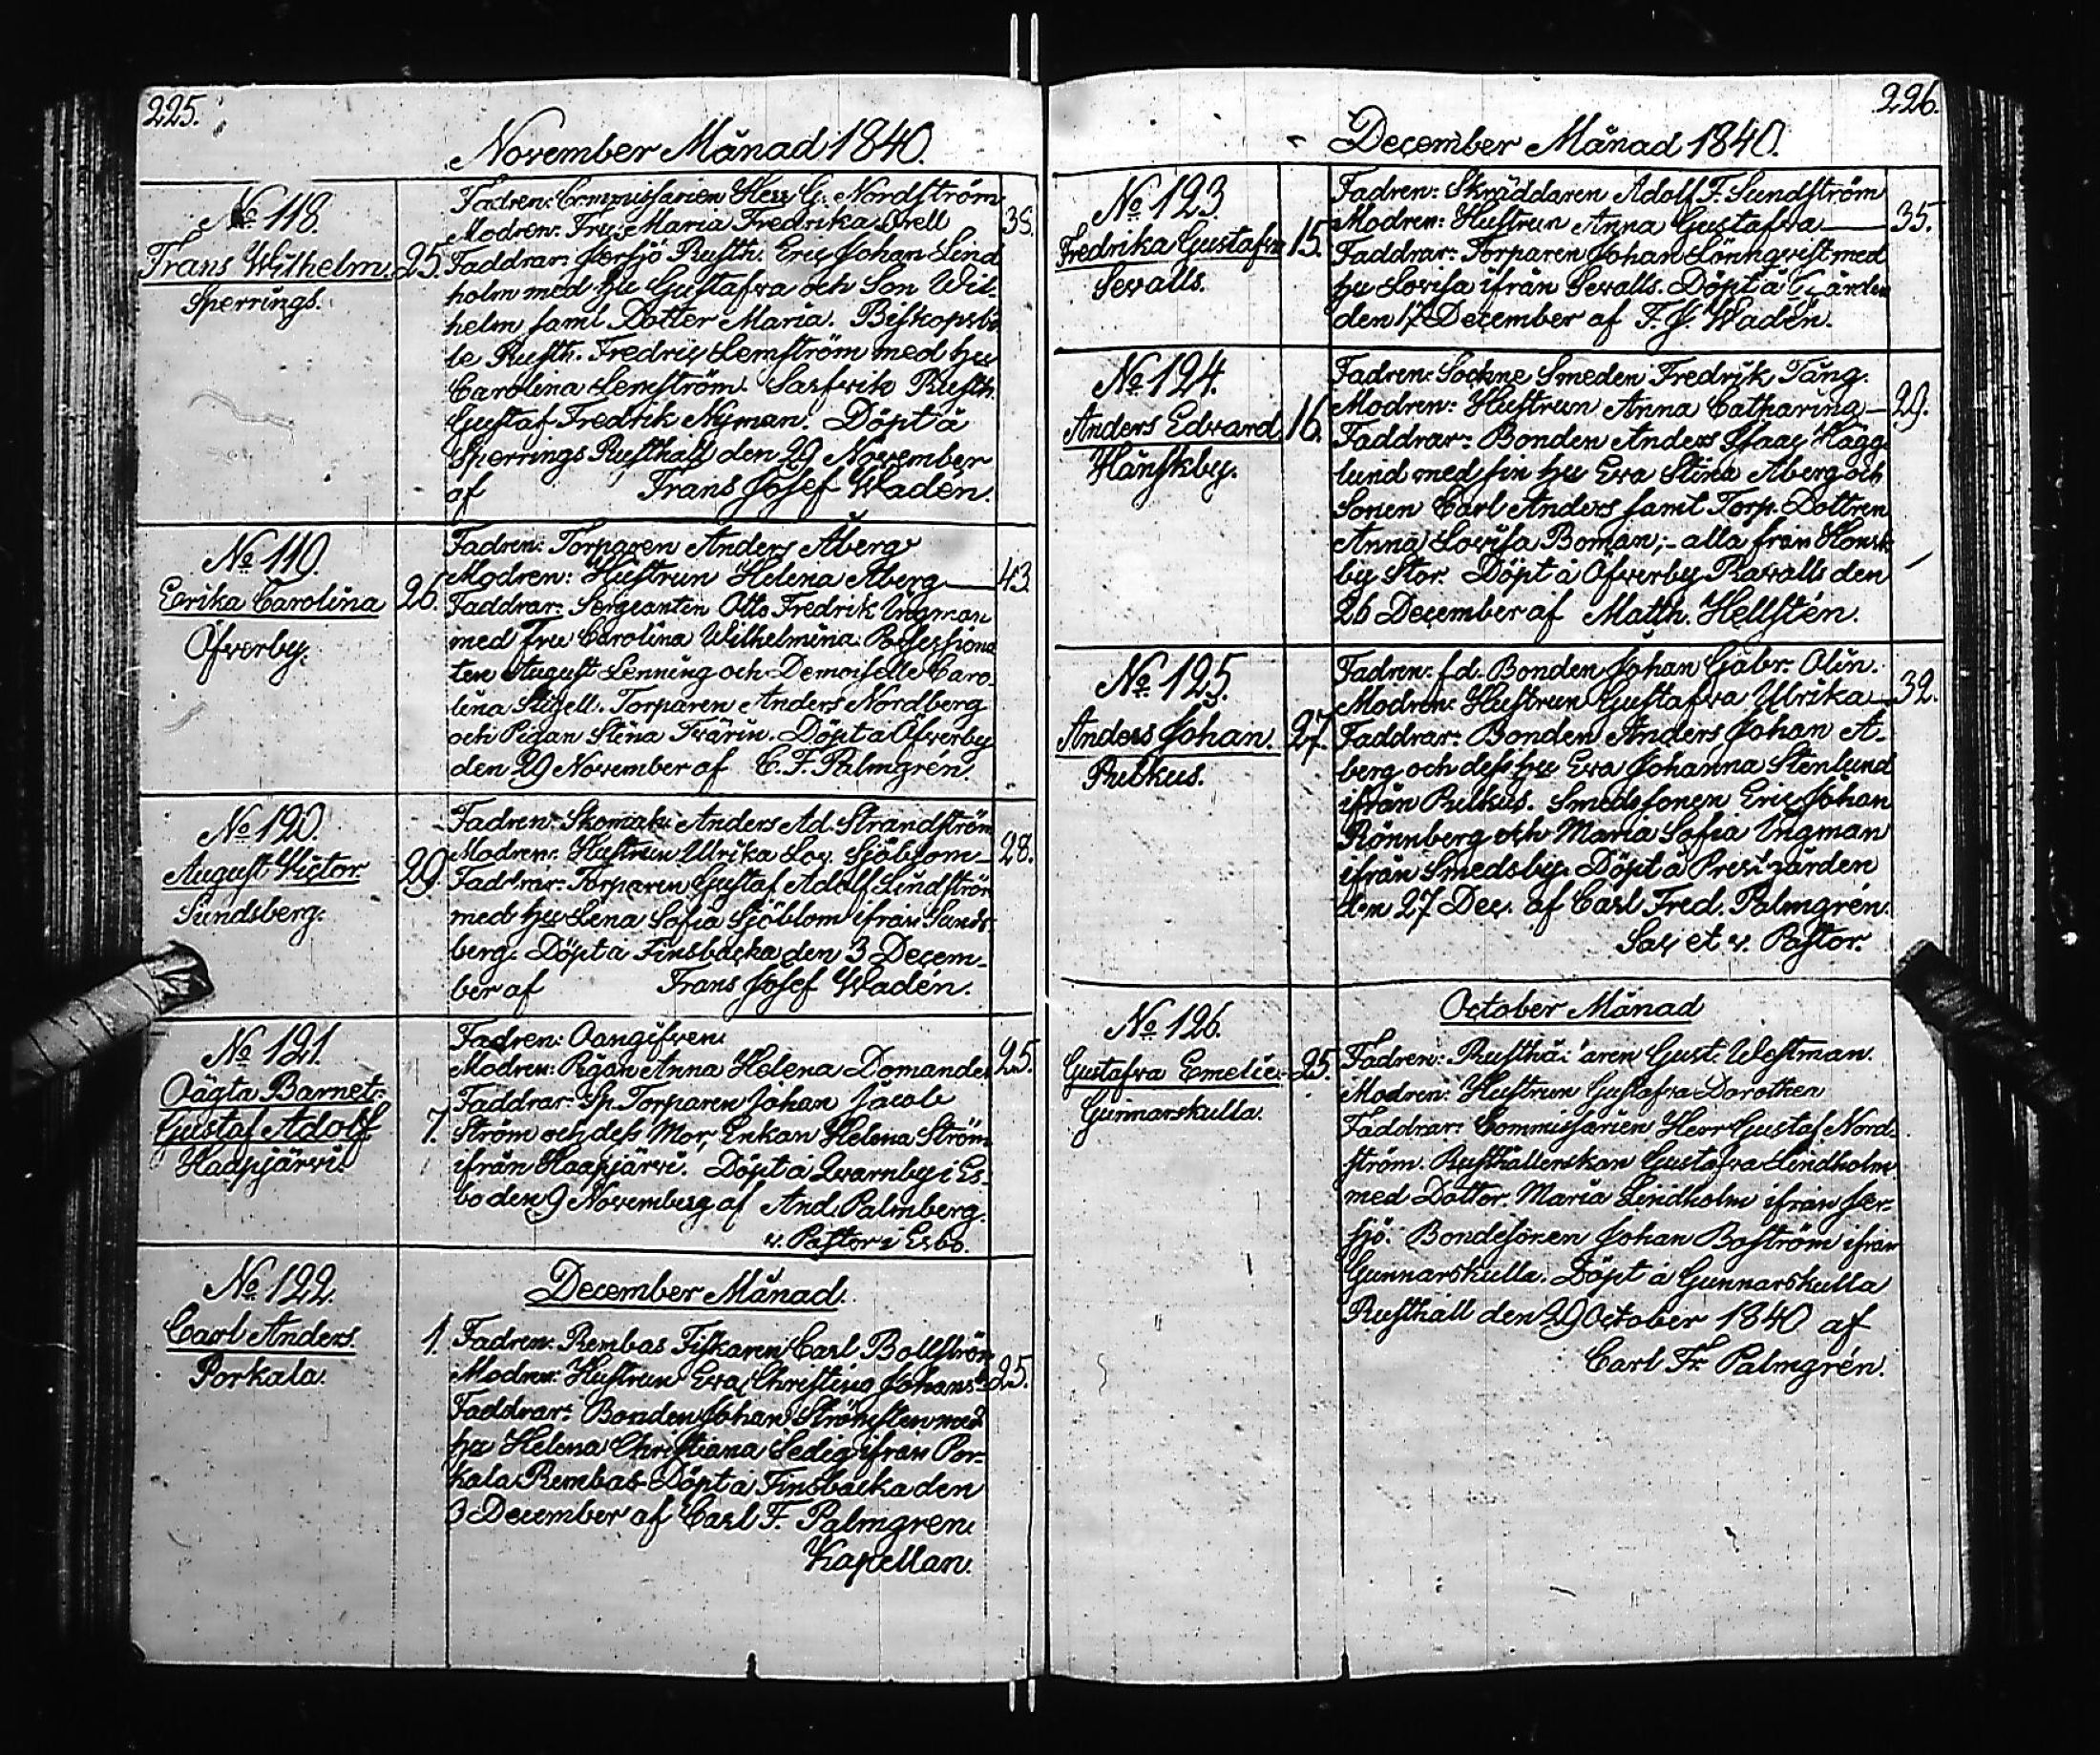 225.
November Månad 1840.
No 118.
Frans Wilhelm.
Sperrings.
25.
Fadren: Commissarien Herr G. Nordström
Modren: Fru Maria Fredrika Orell
38.
Faddrar: Jersjö Rusth. Eric Johan Lind
holm med hu Gustafva och Son Wil-
helm samt Dotter Maria. Biskopsbö
le Rusth. Fredric Lemström med hu
Carolina Lemström. Sarfvik Rusth.
Gustaf Fredrik Nyman. Döpt å
Sperrings Rusthåll den 29 November
af Frans Josef Wadén.
No 119.
Erika Carolina
Öfverby.
26.
Fadren: Torparen Anders Åberg
Modren: Hustrun Helena Åberg
43.
Faddrar: Sergeanten Otto Fredrik Ungman
med Fru Carolina Wilhelmina. Possessiona
ten August Lenning och Demoiselle Caro-
lina Stigell. Torparen Anders Nordberg
och Pigan Stina Frärin. Döpt å Öfverby
den 29 November af C. F. Palmgrén.
No 120.
August Victor
Sundsberg.
29.
Fadren: Skomak. Anders Ad. Strandström
Modren: Hustrun Ulrika Lov. Sjöblom
28.
Faddrar: Torparen Gustaf Adolf Lindström
med hu Lena Sofia Sjöblom ifrån Sunds-
berg. Döpt å Finsbacka den 3 Decem-
ber af Frans Josef Wadén.
No 121.
Oägta Barnet:
Gustaf Adolf
Haapjärvi.
7.
Fadren: Oangifven.
Modren: Pigan Anna Helena Domander
25.
Faddrar: Sp. Torparen Johan Jacob
Ström och dess Mor, Enkan Helena Ström
ifrån Haapjärvi. Döpt å Qvarnby i Es-
bo den 9 November af And. Palmberg.
v. Pastor i Esbo.
No 122.
Carl Anders.
Porkala.
December Månad.
1.
Fadren: Rembas Fiskaren Carl Bollström
Modren: Hustrun Eva Christina Johans
25.
Faddrar: Bonden Johan Strömsten med
hu Helena Christiana Sedig ifrån Por-
kala Rembas. Döpt å Finsbacka den
3 December af Carl F. Palmgren
Kapellan.
226.
December Månad 1840.
No 123.
Fredrika Gustafva
Sevalls.
15.
Fadren: Skräddaren Adolf F. Sundström
Modren: Hustrun Anna Gustafva
35.
Faddrar: Torparen Johan Lönnqvist med
hu Lovisa ifrån Sevalls. Döpt å
den 17 December af F. J. Wadén.
No 124.
Anders Edvard.
Hånskby.
16.
Fadren: Sockne Smeden Fredrik Tång.
Modren: Hustrun Anna Catharina
29.
Faddrar: Bonden Anders Isaac Hägg
lund med sin hu Eva Stina Åberg och
Sonen Carl Anders samt Torp. Dottren
Anna Lovisa Boman;- alla från Honsk
by Stor. Döpt å Öfverby Ravalls den
26 December af Matth. Hellstén.
No 125.
Anders Johan.
Pulkus.
27.
Fadren: f.d. Bonden Johan Gabr. Olin.
Modren: Hustrun Gustafva Ulrika
32.
Faddrar: Bonden Anders Johan Å-
berg och dess hu Eva Johanna Stenlund
ifrån Pulkus. Smedssonen Eric Johan
Rönnberg och Maria Sofia Ungman
ifrån Smedsby. Döpt å Prestgården
den 27 Dec. af Carl Fred. Palmgrén.
Sac et v. Pastor.
No 126.
Gustafva Emelie.
Gunnarskulla.
25.
October Månad
Fadren: Rusthållaren Gust. Westman.
Modren: Hustrun Gustafva Dorothea
Faddrar: Commissarien Herr Gustaf Nord-
ström. Rusthållerskan Gustafva Lindholm
med Dotter. Maria Lindholm ifrån Jer-
sjö. Bondesonen Johan Boström ifrån
Gunnarskulla. Döpt å Gunnarskulla
Rusthåll den 29 October 1840 af
Carl Fr. Palmgrén.